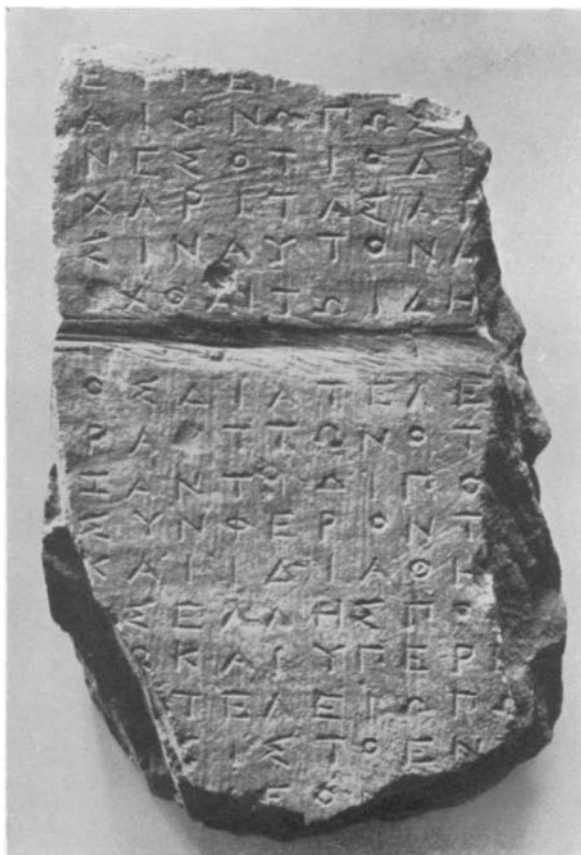 ΑΙΩΝΟΠΩΣ
ΝΕΣΟΤΙΟΔΗ
ΧΑΡΙΤΑΣΑΠ
ΣΙΝΑΥΤΟΝΑ
ΟΧΘΑΙΤΩΙΔΗ
ΟΣΔΙΑΤΕΛΕ
ΡΑΤΤΩΝΟΤ
ΗΑΝΤΟΙΔΙΠΟ
ΣΥΝΦΕΡΟΝΤ
ΚΑΙΙΔΙΑΘΗ
ΣΕΛΛΗΣΠΟ
ΩΚΑΙΥΠΕΡ
ΤΕΛΕΙΩΠΑ
ΙΣΤΟΕΝ